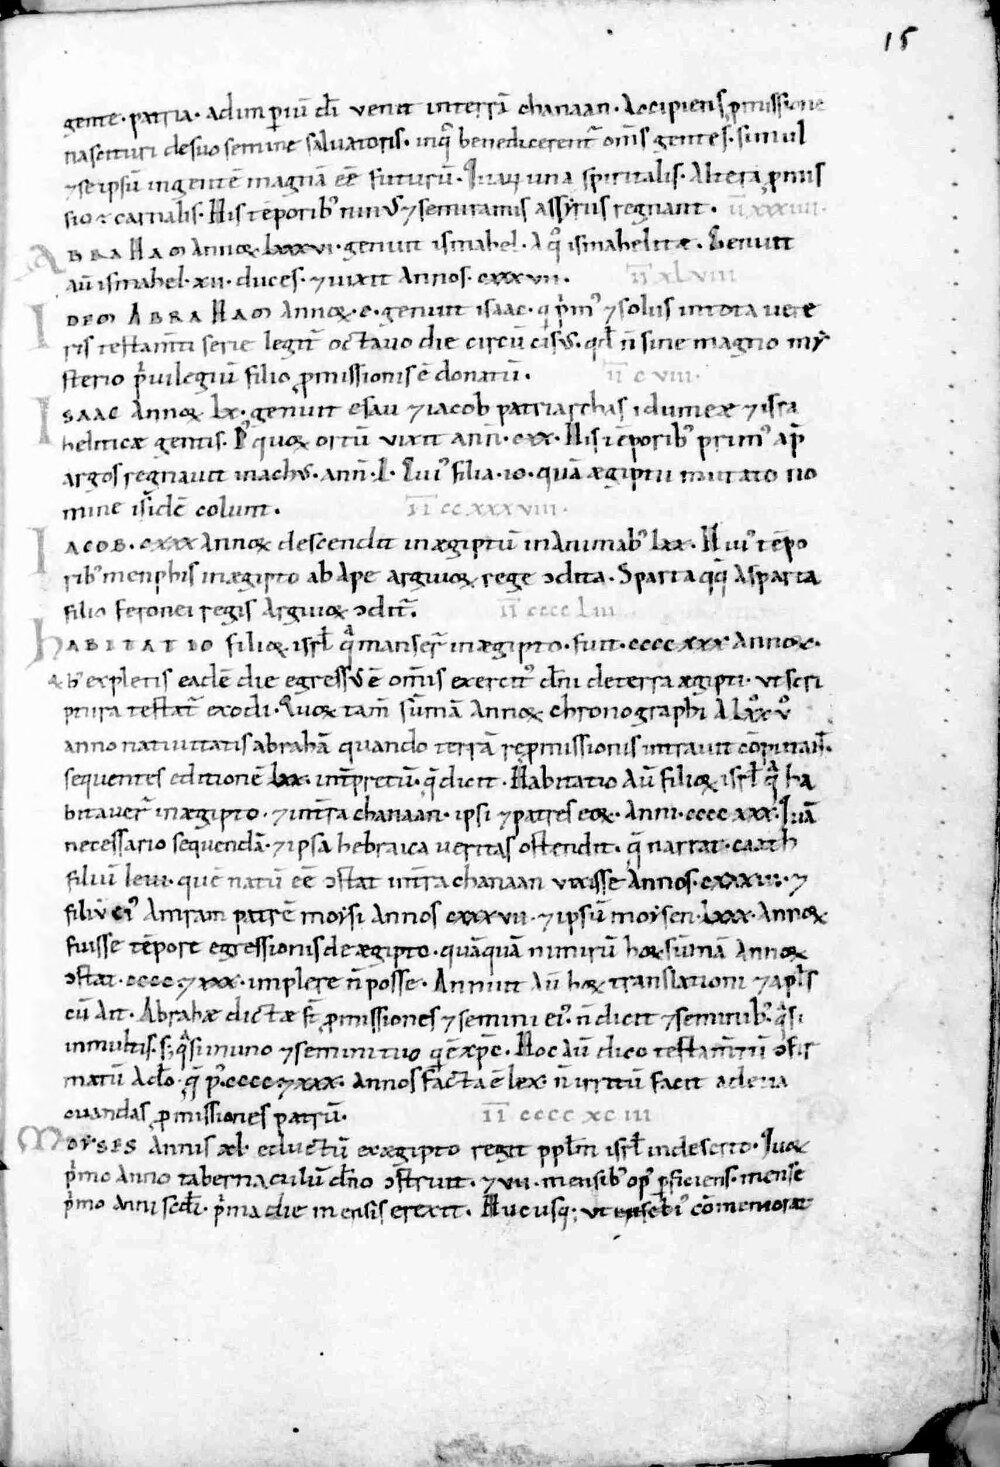 15
gente · patria · ad imperiū dī venit in terrā chanaan · Accipiens ꝓmissione
nascituri de suo semine salvatoris · in q̄ benedicerent̄ om̄s gentes · simul
⁊ se ipsū in gentē magnā eē futurū · Quarū una spiritalis · Altera ꝓmis
sio · carnalis · His tēporibꝰ ninꝰ ⁊ semiramis assyriis regnant · īī xxxiiii ·
ABRAHAM Annoꝝ · lxxxvi · genuit ismahel · A qͦ ismahelitæ · Genuit
aū ismahel · xii · duces · ⁊ vixit Annos · cxxxvii · īī xlviii
IDEM ABRAHAM Annoꝝ · c · genuit isaac · qͥ pͥmꝰ ⁊ solus in tota vete
ris testam̄ti serie legit̄ octavo die circūcisꝰ · qđ n̄ sine magno my
sterio pͥvilegiū filio ꝓmissionis ē donatū · īī c viii ·
ISAAC Annoꝝ lx · genuit esau ⁊ iacob patriarchas idumeæ ⁊ isra
heliticæ gentis · Pꝰ quoꝝ ortū vixit ann̄ · cxx · His tēporibꝰ primꝰ ap̄
argos regnavit inachꝰ · ann̄ · l · Cuiꝰ filia · io · quā ægiptii mutato no
mine isidē colunt · īī cc xxxviii ·
IACOB · cxxx Annoꝝ descendit in ægiptū in Animabꝰ lxx · Huiꝰ tēpo
ribꝰ menphis in ægipto ab Ape arguioꝝ rege ↄdita · Sparta qͦqͣ A sparta
filio feronei regis Arguioꝝ ↄdit̄ · īī cccc liii
HABITATIO filioꝝ isrl̄ qͣ manser̄ in ægipto · fuit · cccc xxx Annoꝝ ·
qͥbꝰ expletis eadē die egressꝰ ē om̄is exercitꝰ dn̄i de terra ægipti · ut scri
ptura testat̄ exodi · Quoꝝ tam̄ sūmā Annoꝝ chronographi A lxxv
anno nativitatis abrahā quando terrā repromissionis intravit cōputant̄ ·
sequentes editionē lxx · int̄pretū · q̄ dicit · Habitatio Aū filioꝝ isrl̄ qͣ ha
bitaver̄ in ægipto · ⁊ in t̄ra chanaan · ipsi ⁊ patres eoꝝ · Anni · cccc xxx · Quā
necessario sequendā · ⁊ ipsa hebraica veritas ostendit · q̄ narrat · caath
filiū levi · quē natū eē ↄstat in t̄ra chanaan vixisse Annos · cxxxiii · ⁊
filiū eiꝰ Amram patrē moysi Annos cxxxvii · ⁊ ipsū moysen · lxxx · Annoꝝ
fuisse tēpore egressionis de ægipto · quāquā nimirū hoꝝ sūmā Annoꝝ
ↄstat · cccc · ⁊ xxx · implere n̄ posse · Annuit Aū hoꝝ translationi ⁊ apl̄s
cū Ait · Abrahæ dictæ st̄ ꝓmissiones ⁊ semini eiꝰ · n̄ dicit ⁊ seminibꝰ · qͣsi
in multis · s; qͣsi in uno ⁊ semini tuo qͥ ē xp̄c · Hoc Aū dico testam̄tū ↄfir
matū A dō · q̄ pꝰ · cccc · ⁊ xxx · annos facta ē lex · n̄ irritū facit ad eva
cuandas ꝓmissiones patrū · īī cccc xc iii
MOYSES Annis xl · eductū ex ægipto regit pplm̄ isrl̄ in deserto · Quoꝝ
pͥmo Anno tabernaculū dn̄o ↄstruit · ⁊ vii · mensibꝰ opꝰ perficiens · mense
pͥmo anni scd̄i · pͥma die mensis erexit · Hucusq; ut eusebiꝰ cōmemorat